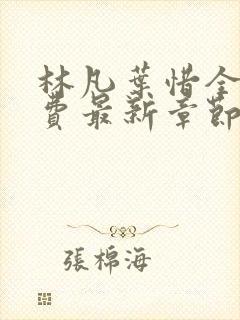 林凡葉惜全
費最新章節
張棉海